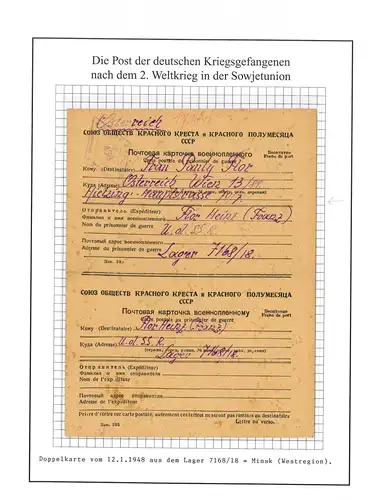 Die Post der deutschen Kriegsgefangenen
nach dem 2. Weltkrieg in der Sowjetunion
Österreich
СОЮЗ ОБЩЕСТВ КРАСНОГО КРЕСТА и КРАСНОГО ПОЛУМЕСЯЦА
СССР
Почтовая карточка военнопленного
Carte postale du prisonnier de guerre
Бесплатно
Franc de port
Кому (Destinataire)
Куда (Adresse) Österreich Wien 13/
Hietzing-Hauptstrasse
Отправитель (Expéditeur) Flor Heinz (Franz)
Фамилия и имя военнопленного
Nom du prisonnier de guerre U.d.SS R.
Почтовый адрес военнопленного
Adresse du prisonnier de guerre Lager 7168/18.
СОЮЗ ОБЩЕСТВ КРАСНОГО КРЕСТА и КРАСНОГО ПОЛУМЕСЯЦА
СССР
Почтовая карточка военнопленному
Carte postale au prisonnier de guerre
Бесплатно
Franc de port
Кому (Destinataire) Flor Heinz (Franz)
Куда (Adresse) U.d.SS R.
Lager 7168/18.
Отправитель (Expéditeur)
Фамилия и имя отправителя
Nom de l'expéditeur
Почтовый адрес отправителя
Adresse de l'expéditeur
Prière d'écrire sur carte postale, autrement ces lettres ne seront pas remises au destinataire
Doppelkarte vom 12.1.1948 aus dem Lager 7168/18 = Minsk (Westregion).